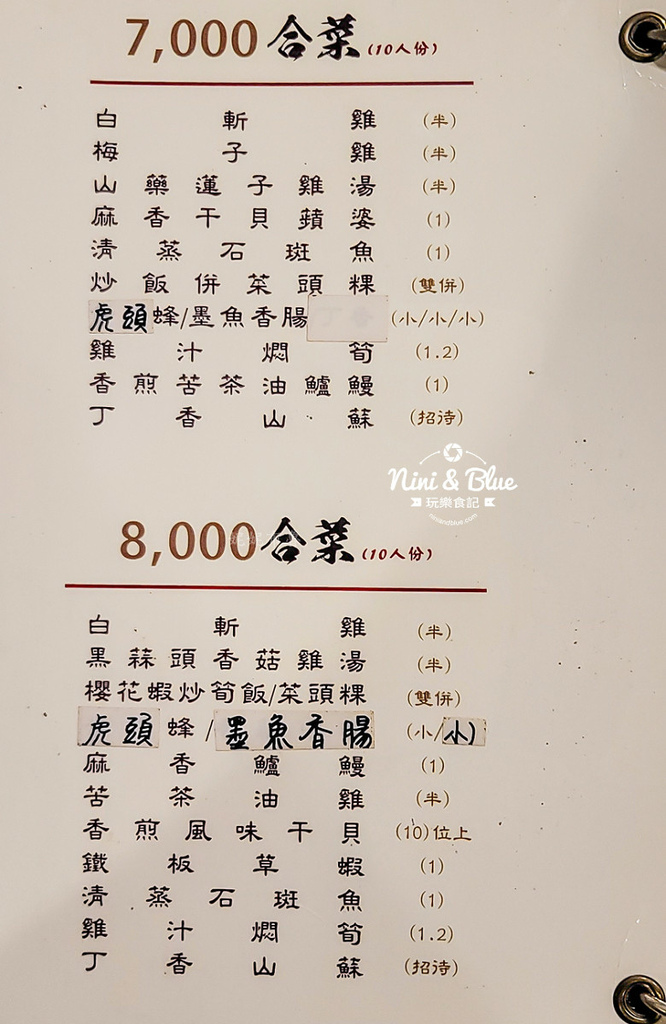 7,000合菜(10人份)
白斬雞(半)
梅子雞(半)
山藥蓮子雞湯(半)
麻香干貝蘋婆(1)
清蒸石斑魚(1)
炒飯併菜頭粿(雙併)
虎頭蜂/墨魚香腸(小/小/小)
雞汁燜筍(1.2)
香煎苦茶油鱸鰻(1)
丁香山蘇(招待)
Nini & Blue
玩樂食記
niniandblue.com
8,000合菜(10人份)
白斬雞(半)
黑蒜頭香菇雞湯(半)
櫻花蝦炒筍飯/菜頭粿(雙併)
虎頭蜂/墨魚香腸(小/小)
麻香鱸鰻(1)
苦茶油雞(半)
香煎風味干貝(10)位上
鐵板草蝦(1)
清蒸石斑魚(1)
雞汁燜筍(1.2)
丁香山蘇(招待)